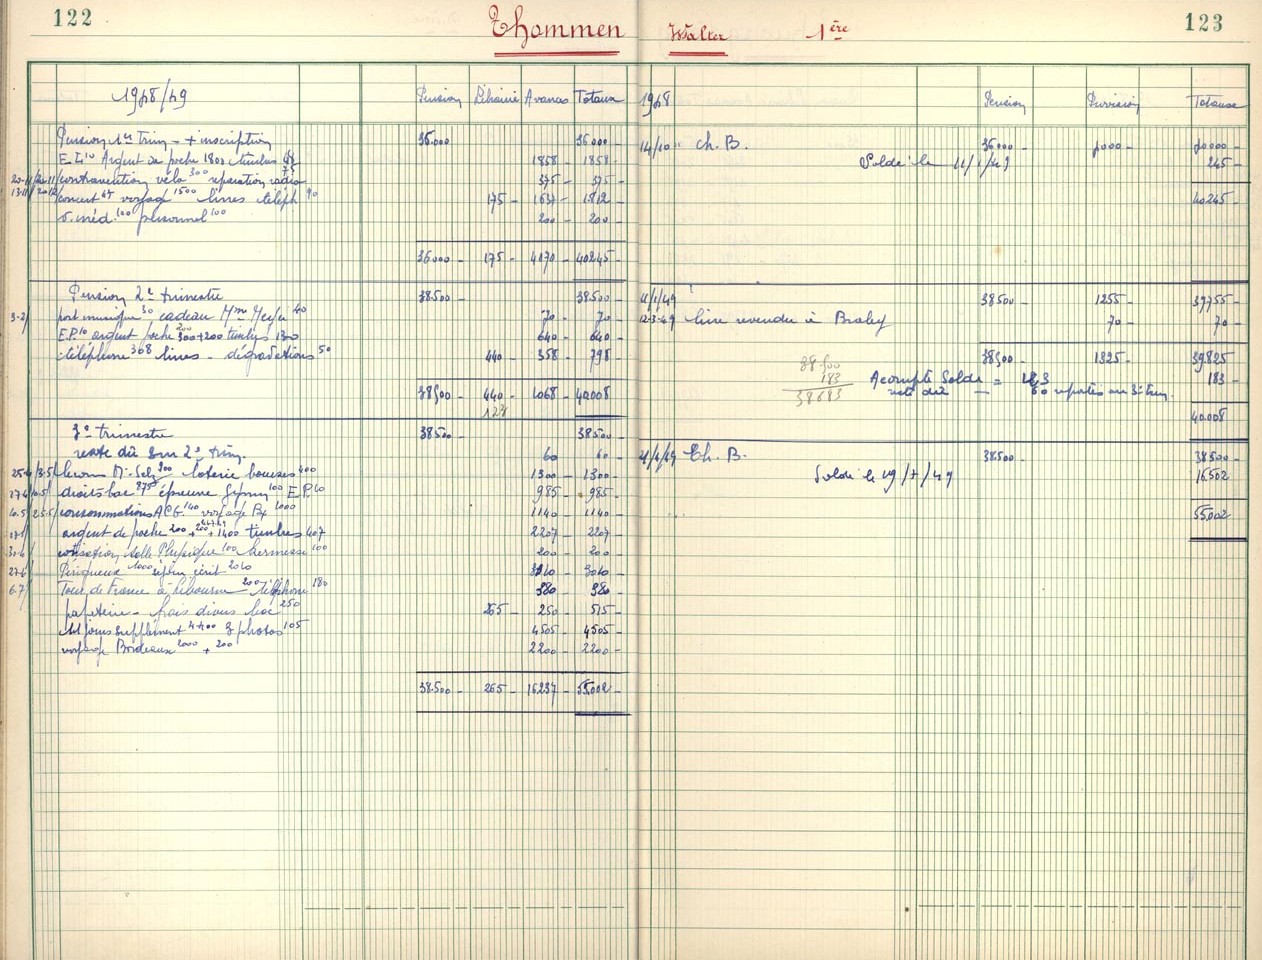 122
Thommen Walter 1ère
123
1948/49 Pension Librairie Avances Totaux
Pension 1er Trim - + inscription 36.000 36.000
Argent de poche 1800 timbres 48 1858 - 1858 -
20-11/24-11/ contravention vélo 300 réparation radio 75 375 - 375 -
concert voyage 1500 livres téléph 90 175 - 1637 - 1812 -
v. méd. 100 personnel 100 200 - 200 -
36.000 - 175 - 4070 - 40245 -
Pension 2e trimestre 38.500 - 38.500 -
3-2/ port musique 30 cadeau Mme 40 70 - 70 -
E.P. 10 argent poche 300+200 timbres 130 640 - 640 -
téléphone 308 livres - dégradations 50 440 - 358 - 798 -
38.500 - 440 - 1068 - 40.008 -
123
3e trimestre 38.500 - 38.500 -
reste dû sur 2e trim. 60 - 60 -
leçons Mr 900 loterie bourses 400 1300 - 1300 -
droits bac 875 épreuve gymn 100 E.P. 10 985 - 985 -
consommations 140 voyage Bx 1000 1140 - 1140 -
argent de poche 200 + 200 + 1400 timbres 407 2207 - 2207 -
cotisation salle Physique 100 kermesse 100 200 - 200 -
27.6 Périgueux 1000 écrit 2010 3010 - 3010 -
6.7/ Tour de France à Libourne 200 téléphone 180 380 - 380 -
papeterie - frais divers bac 250 265 - 250 - 515 -
jours supplément 4400 3 photos 105 4505 - 4505 -
voyage Bordeaux 2000 + 200 2200 - 2200 -
38.500 - 265 - 16237 - 55.002 -
1948 Pension Provision Totaux
14/10 Ch. B. 36000 - 4000 - 40000 -
Solde le 11/1/49 245 -
40245 -
11/1/49 38500 - 1255 - 39755 -
12-3-49 livre revendu à 70 - 70 -
38500 - 1325 - 39.825
38500
183
38683
Acompte Solde = 123 183 -
reste dû — 60 reportés au 3e trim.
40.008 -
Ch. B. 38.500 - 38.500 -
Solde le 19/7/49 16.502
55.002